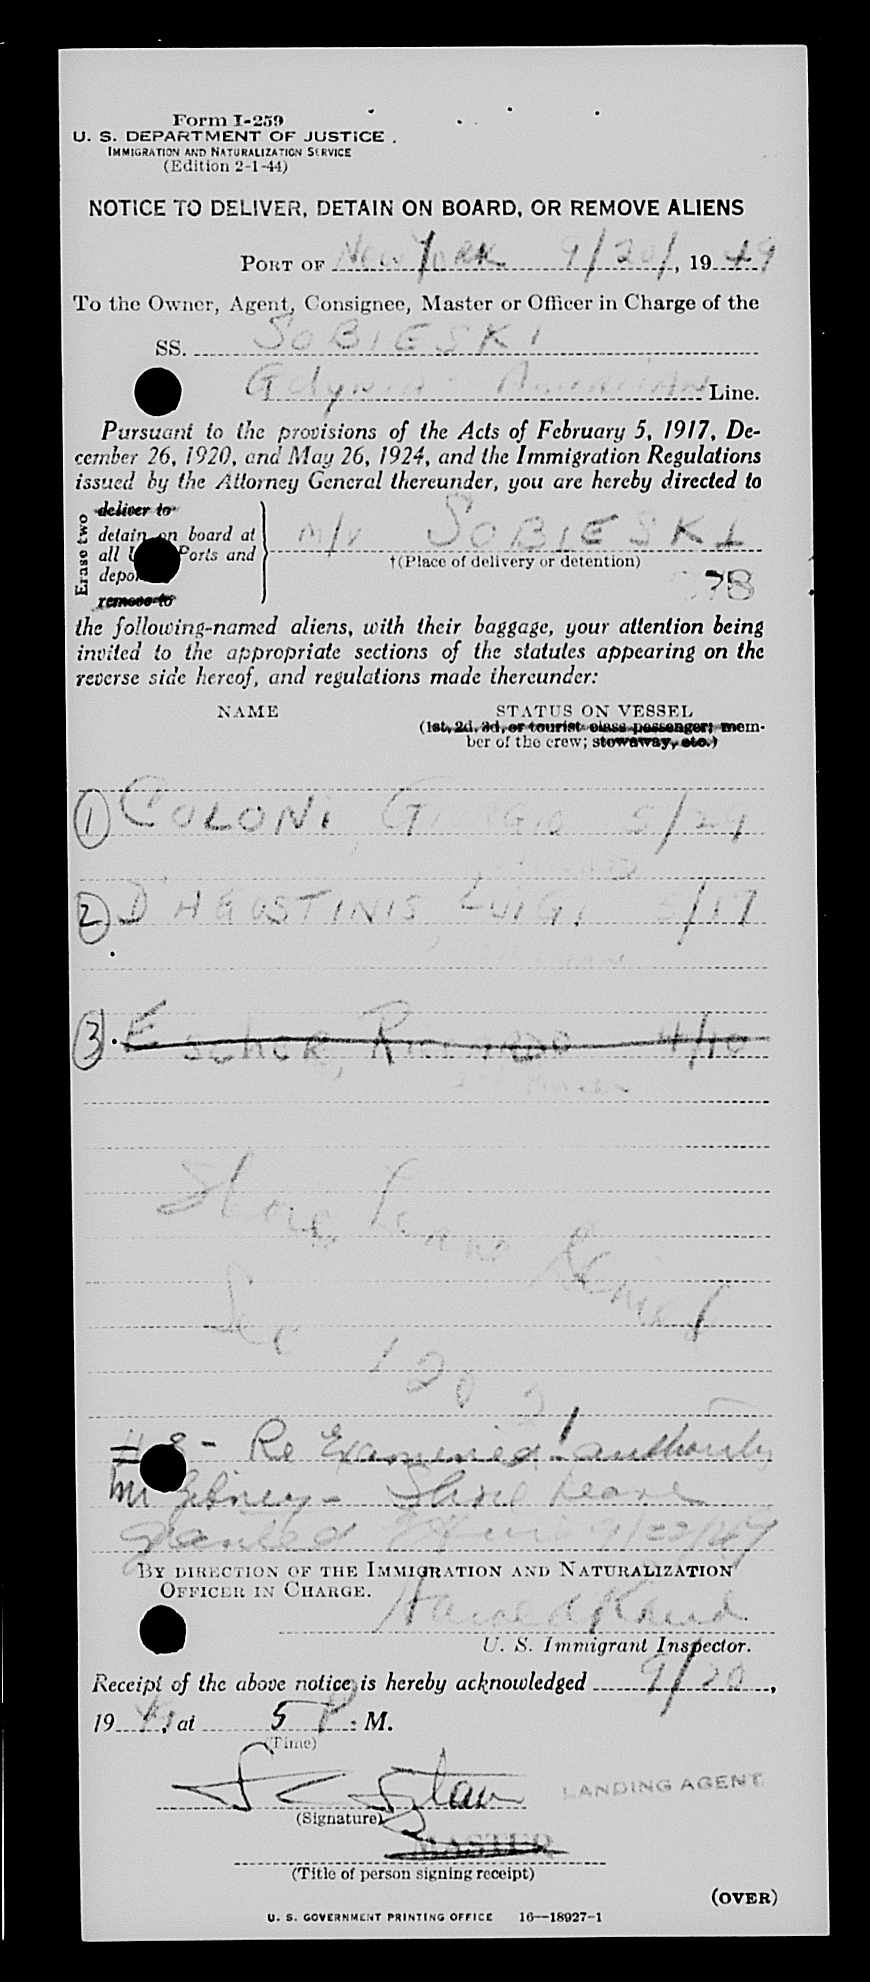 Form I-259
U. S. DEPARTMENT OF JUSTICE
IMMIGRATION AND NATURALIZATION SERVICE
(Edition 2-1-44)
NOTICE TO DELIVER, DETAIN ON BOARD, OR REMOVE ALIENS
PORT OF New York 9/20/, 19 49
To the Owner, Agent, Consignee, Master or Officer in Charge of the
SS. SOBIESKI
Gdynia American Line.
Pursuant to the provisions of the Acts of February 5, 1917, De-
cember 26, 1920, and May 26, 1924, and the Immigration Regulations
issued by the Attorney General thereunder, you are hereby directed to
Erase two
deliver to
detain on board at
all Ports and
remove to
M/V SOBIESKI
†(Place of delivery or detention)
the following-named aliens, with their baggage, your attention being
invited to the appropriate sections of the statutes appearing on the
reverse side hereof, and regulations made thereunder:
NAME STATUS ON VESSEL
(1st, 2d, 3d, or tourist class passenger; mem-
ber of the crew; stowaway, etc.)
1 COLONI, GIORGIO 5/29
2 D'AGOSTINIS, LUIGI 5/17
3 ESCHER, RICCARDO 4/10
Shore Leave Denied
Sec
- Re Examined! authority
Mr Gibney - Shore Leave
granted
BY DIRECTION OF THE IMMIGRATION AND NATURALIZATION
OFFICER IN CHARGE.
Harold
U. S. Immigrant Inspector.
Receipt of the above notice is hereby acknowledged 9/20,
19 49, at 5 P. M.
(Time)
LANDING AGENT
(Signature)
MASTER
(Title of person signing receipt)
(OVER)
U. S. GOVERNMENT PRINTING OFFICE 16—18927-1